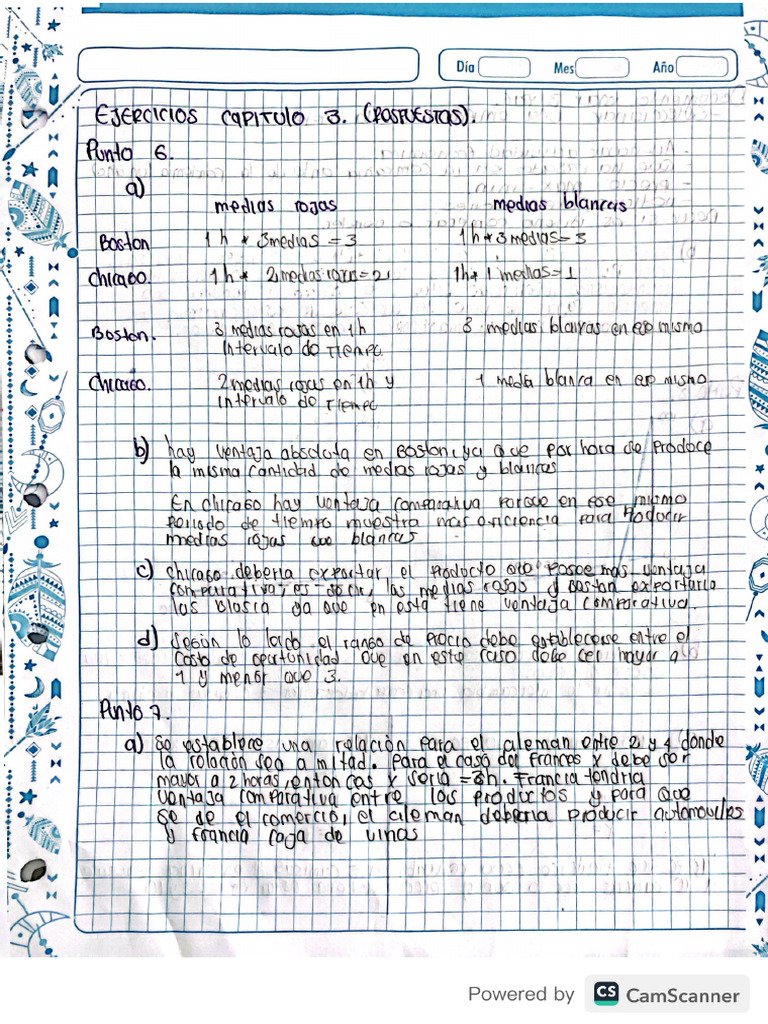 Día Mes Año
EJERCICIOS CAPITULO 3. (RASPUESTAS).
Punto 6.
a)
medias rojas medias blancas
Boston 1 h * 3medias = 3 1h * 3 medias = 3
Chicago. 1 h * 2 medias rojas = 2 1h * 1 medias = 1
Boston. 3 medias rojas en 1h 3 medias blancas en ese mismo
Intervalo de Tiempo.
Chicago. 2 medias rojas en 1h y 1 media blanca en ese mismo
intervalo de Tiempo
b) hay ventaja absoluta en Boston, ya que por hora se produce
la misma cantidad de medias rojas y blancas
En chicago hay ventaja comparativa porque en ese mismo
periodo de tiempo muestra mas eficiencia para Producir
medias rojas que blancas
c) chicago deberia exportar el producto que posee mas ventaja
comparativa, es decir, las medias rojas y Boston exportaria
las blasca ya que en esta tiene ventaja comparativa.
d) Según lo laido el rango de Precio debe establecerse entre el
Costo de oportunidad que en este caso debe ser mayor a
1 y menor que 3.
Punto 7.
a) Se establece una relación para el aleman entre 2 y 4 donde
la relación sea a mitad. Para el caso del frances x debe ser
mayor a 2 horas, entoncas x seria =3h. Francia tendria
ventaja comparativa entre los productos y para que
se de el comercio, el aleman deberia producir automoviles
y francia caja de vinos
Powered by CS CamScanner